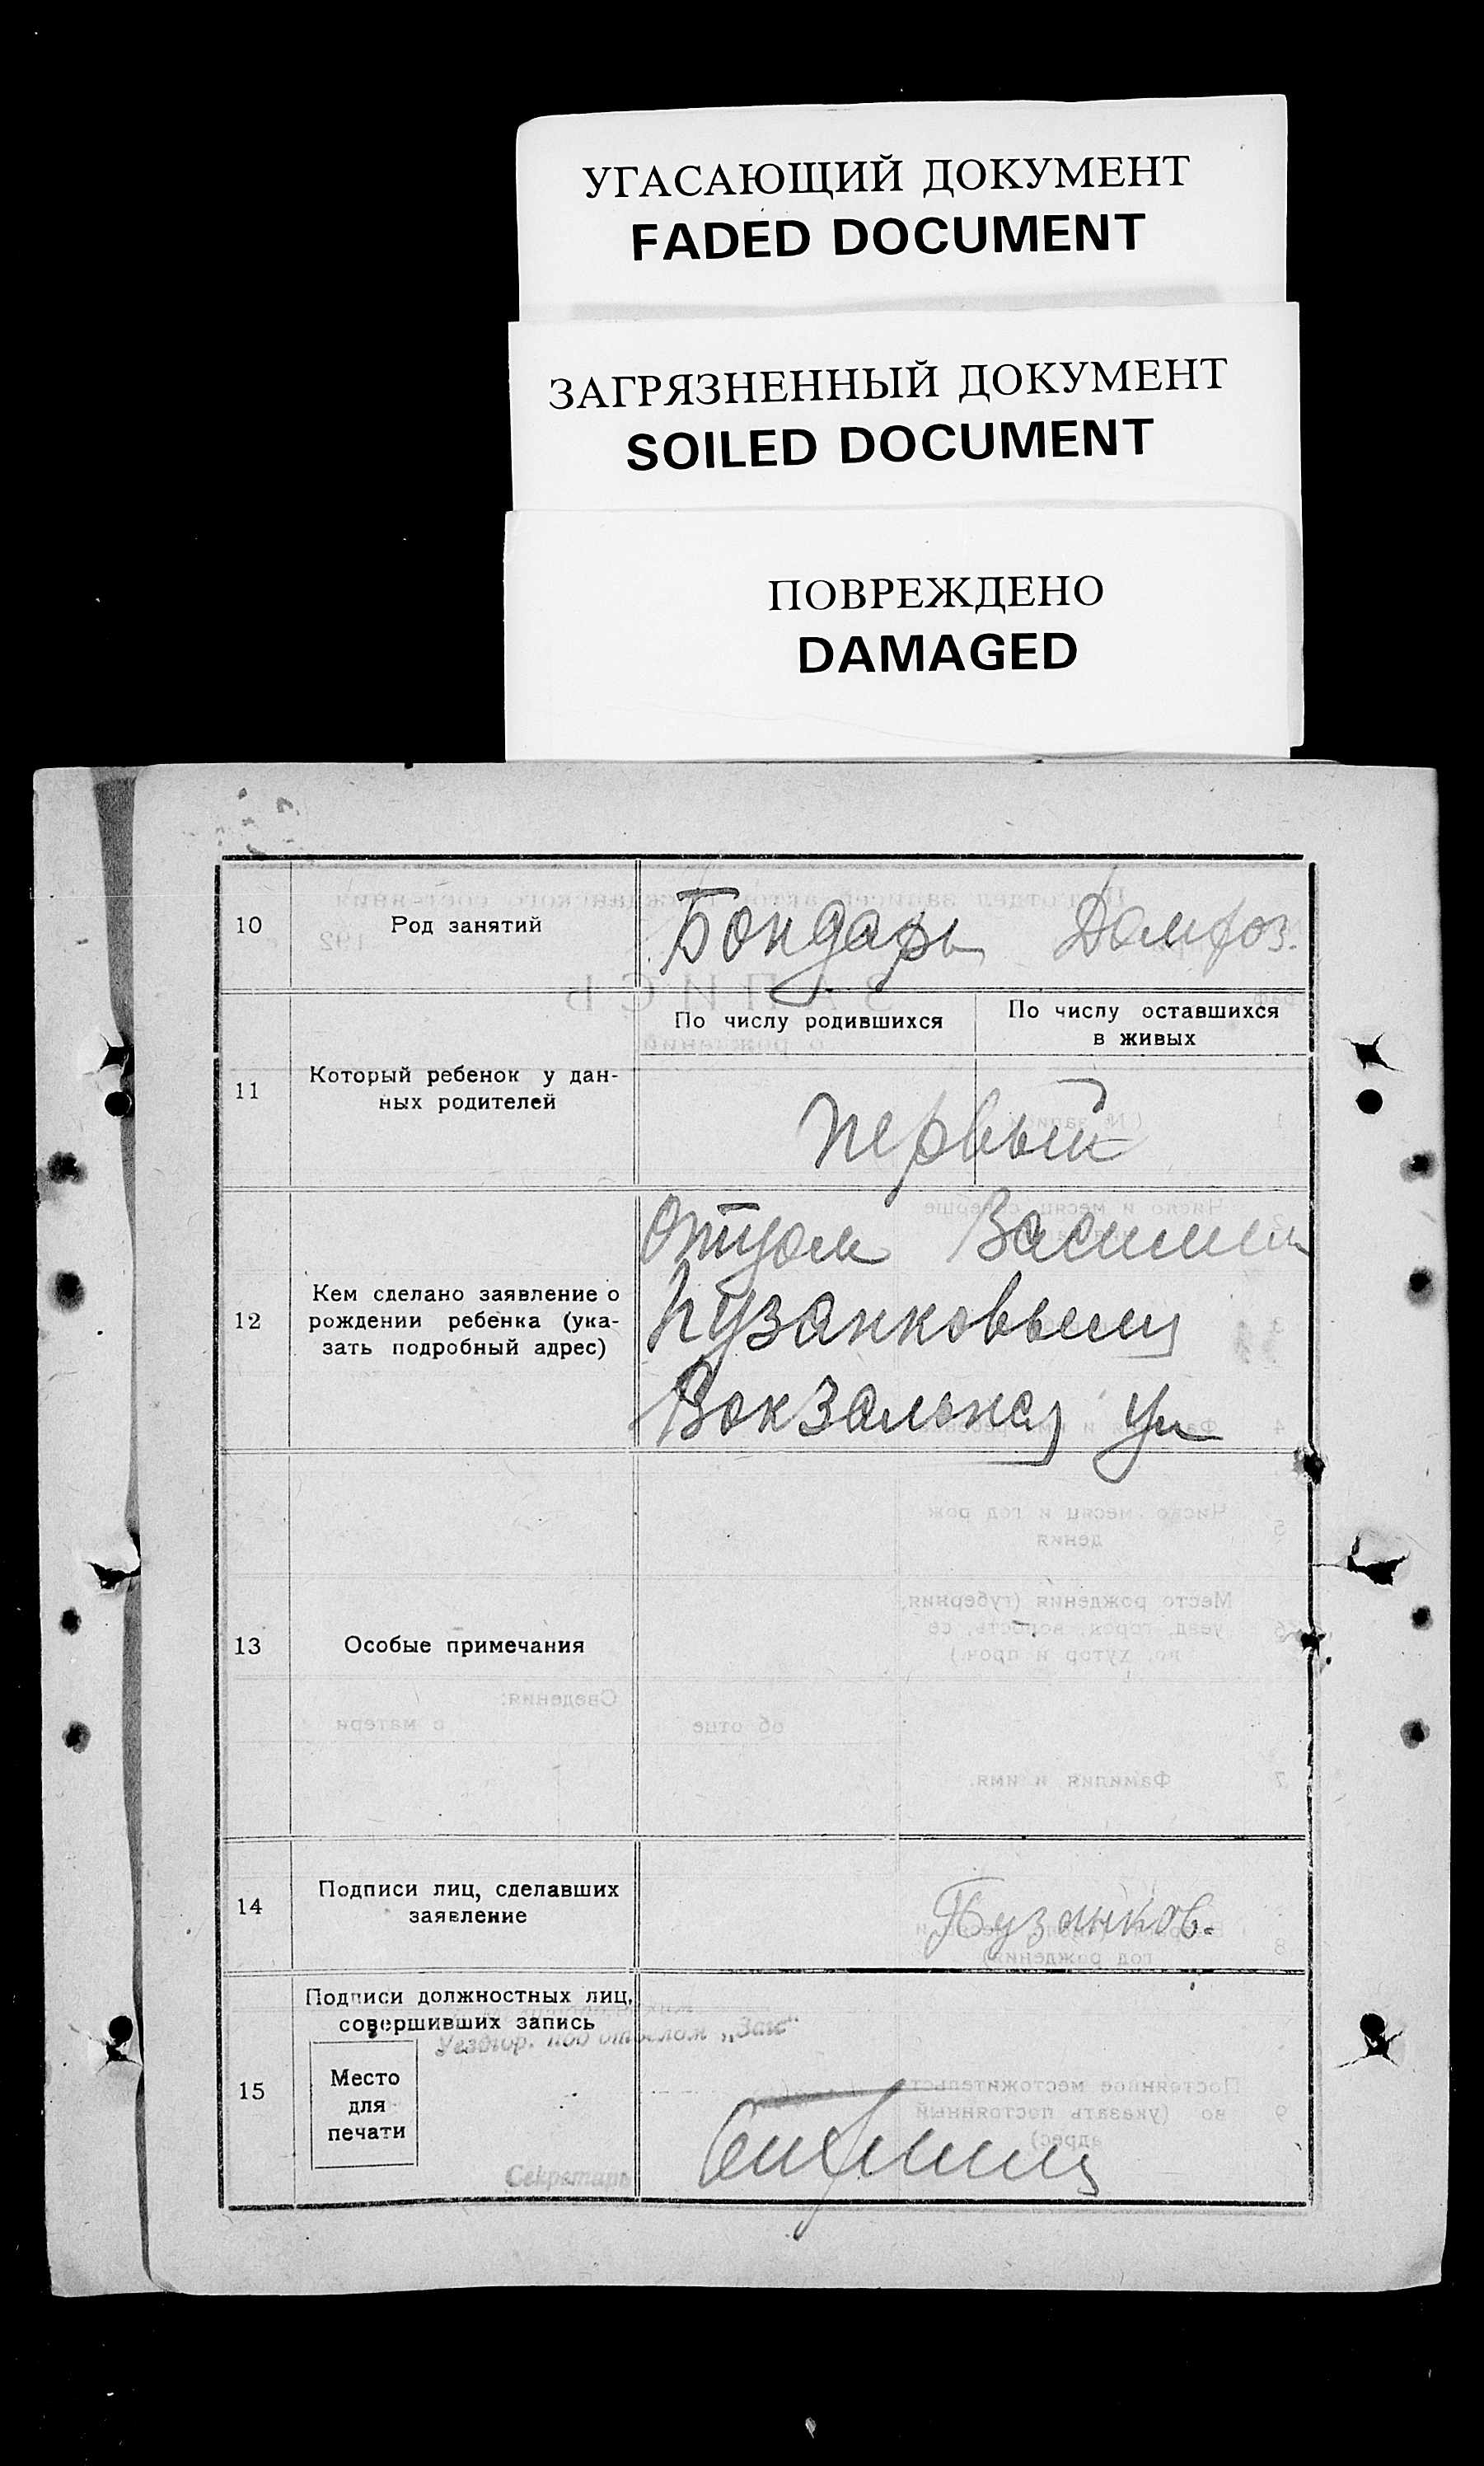 УГАСАЮЩИЙ ДОКУМЕНТ
FADED DOCUMENT
ЗАГРЯЗНЕННЫЙ ДОКУМЕНТ
SOILED DOCUMENT
ПОВРЕЖДЕНО
DAMAGED
10
Род занятий
Бондарь Домхоз.
По числу родившихся
По числу оставшихся
в живых
11
Который ребенок у дан-
ных родителей
первый
12
Кем сделано заявление о
рождении ребенка (ука-
зать подробный адрес)
Отцом Василием
Пузанковым
Вокзальная ул
13
Особые примечания
14
Подписи лиц, сделавших
заявление
Пузанков.
15
Подписи должностных лиц,
совершивших запись
Уездгор. под отделом „Загс“
Место
для
печати
Секретарь